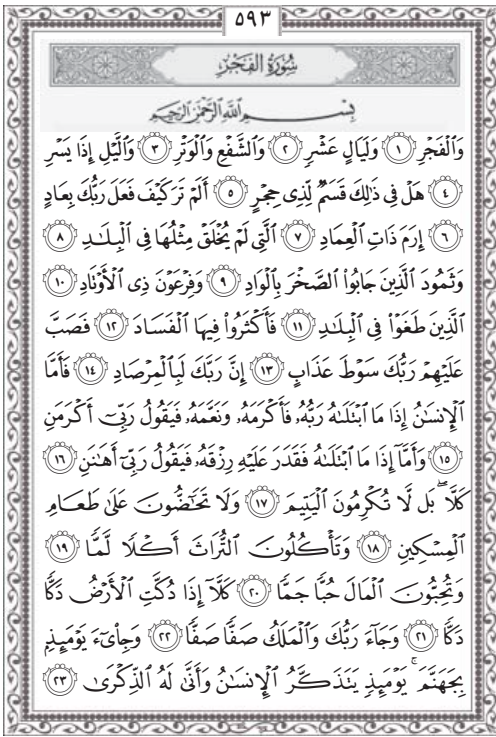 ٥٩٣
سُورَةُ الفَجْرِ
بِسْمِ اللَّهِ الرَّحْمَٰنِ الرَّحِيمِ
وَالْفَجْرِ ١ وَلَيَالٍ عَشْرٍ ٢ وَالشَّفْعِ وَالْوَتْرِ ٣ وَاللَّيْلِ إِذَا يَسْرِ
٤ هَلْ فِي ذَٰلِكَ قَسَمٌ لِّذِي حِجْرٍ ٥ أَلَمْ تَرَ كَيْفَ فَعَلَ رَبُّكَ بِعَادٍ
٦ إِرَمَ ذَاتِ الْعِمَادِ ٧ الَّتِي لَمْ يُخْلَقْ مِثْلُهَا فِي الْبِلَادِ ٨
وَثَمُودَ الَّذِينَ جَابُوا الصَّخْرَ بِالْوَادِ ٩ وَفِرْعَوْنَ ذِي الْأَوْتَادِ ١٠
الَّذِينَ طَغَوْا فِي الْبِلَادِ ١١ فَأَكْثَرُوا فِيهَا الْفَسَادَ ١٢ فَصَبَّ
عَلَيْهِمْ رَبُّكَ سَوْطَ عَذَابٍ ١٣ إِنَّ رَبَّكَ لَبِالْمِرْصَادِ ١٤ فَأَمَّا
الْإِنسَانُ إِذَا مَا ابْتَلَاهُ رَبُّهُ فَأَكْرَمَهُ وَنَعَّمَهُ فَيَقُولُ رَبِّي أَكْرَمَنِ
١٥ وَأَمَّا إِذَا مَا ابْتَلَاهُ فَقَدَرَ عَلَيْهِ رِزْقَهُ فَيَقُولُ رَبِّي أَهَانَنِ ١٦
كَلَّا ۖ بَل لَّا تُكْرِمُونَ الْيَتِيمَ ١٧ وَلَا تَحَاضُّونَ عَلَىٰ طَعَامِ
الْمِسْكِينِ ١٨ وَتَأْكُلُونَ التُّرَاثَ أَكْلًا لَّمًّا ١٩
وَتُحِبُّونَ الْمَالَ حُبًّا جَمًّا ٢٠ كَلَّا إِذَا دُكَّتِ الْأَرْضُ دَكًّا
دَكًّا ٢١ وَجَاءَ رَبُّكَ وَالْمَلَكُ صَفًّا صَفًّا ٢٢ وَجِايءَ يَوْمَئِذٍ
بِجَهَنَّمَ ۚ يَوْمَئِذٍ يَتَذَكَّرُ الْإِنسَانُ وَأَنَّىٰ لَهُ الذِّكْرَىٰ ٢٣